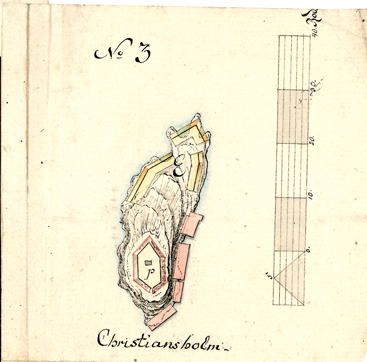 No 3
40.
Rod
30.
20.
10.
0.
5
E
P
Christiansholm